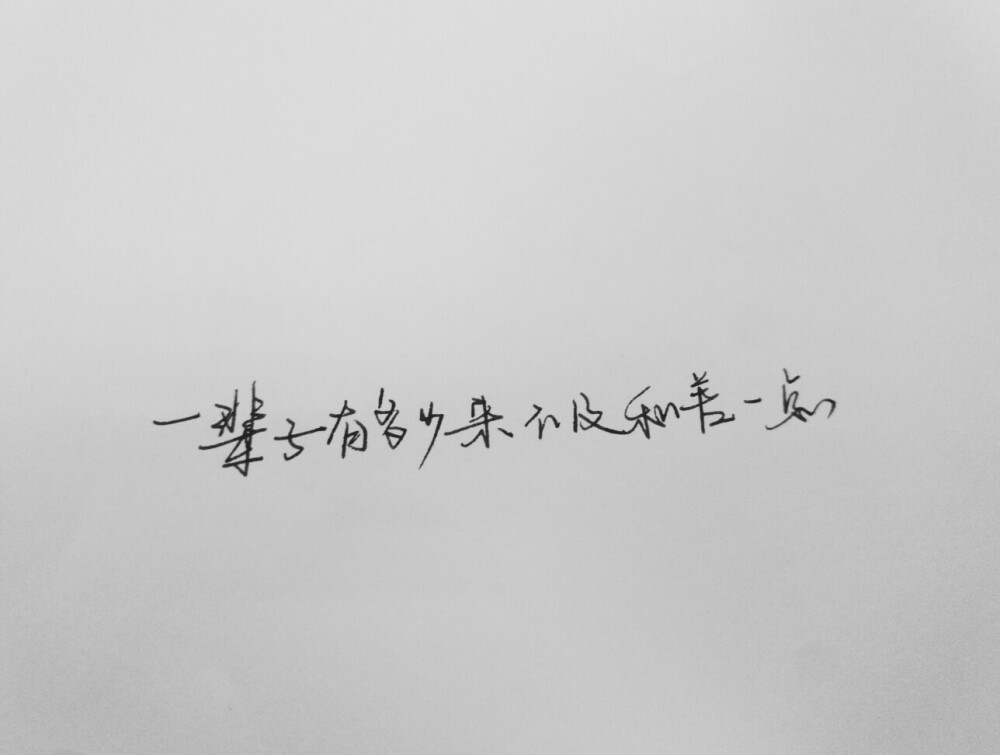 一辈子有多少来不及和善一点